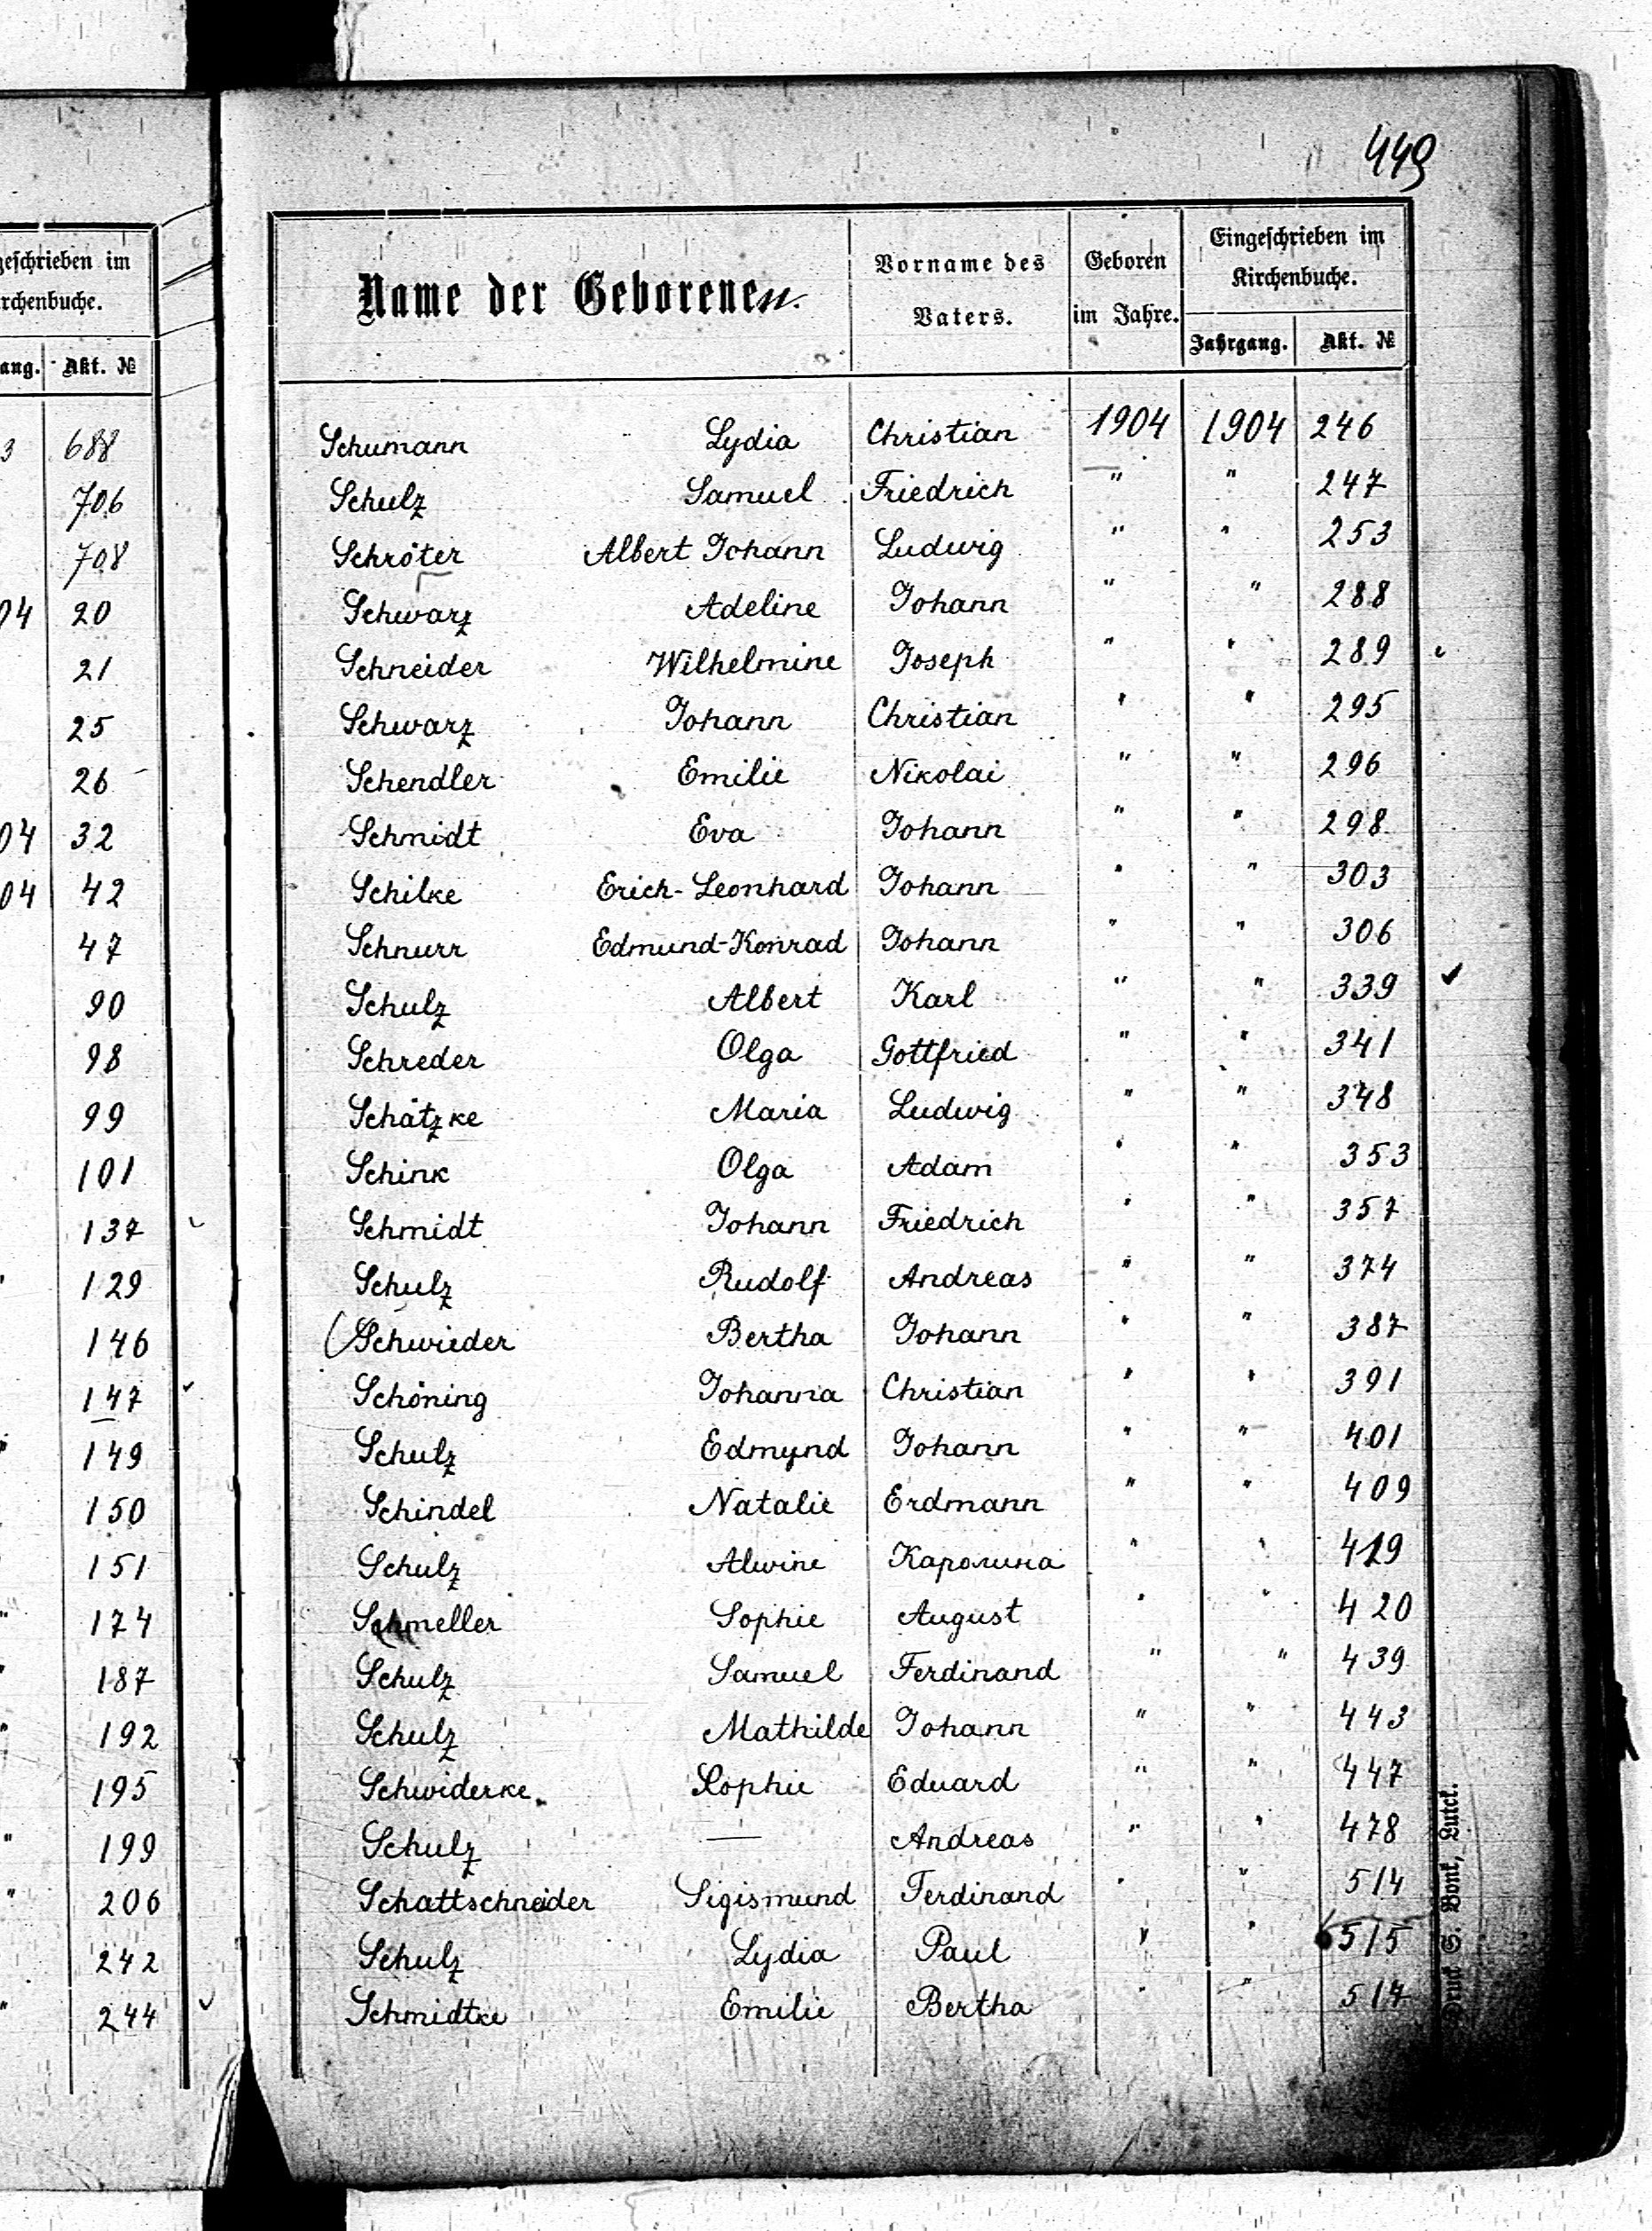 449
geschrieben im
rchenbuche.
ang. Akt. №
3 688
706
708
04 20
21
25
26
04 32
04 42
47
90
98
99
101
137
" 129
146
147
" 149
150
151
" 174
" 187
" 192
195
" 199
" 206
242
" 244
Name der Geborenen. Vorname des Vaters. Geboren im Jahre. Eingeschrieben im Kirchenbuche.
Jahrgang. Akt. №
Schumann Lydia Christian 1904 1904 246
Schulz Samuel Friedrich " " 247
Schröter Albert Johann Ludwig " " 253
Schwarz Adeline Johann " " 288
Schneider Wilhelmine Joseph " " 289
Schwarz Johann Christian " " 295
Schendler Emilie Nikolai " " 296
Schmidt Eva Johann " " 298
Schilke Erich-Leonhard Johann " " 303
Schnurr Edmund-Konrad Johann " " 306
Schulz Albert Karl " " 339
Schreder Olga Gottfried " " 341
Schätzke Maria Ludwig " " 348
Schink Olga Adam " " 353
Schmidt Johann Friedrich " " 357
Schulz Rudolf Andreas " " 374
Schwieder Bertha Johann " " 387
Schöning Johanna Christian " " 391
Schulz Edmund Johann " " 401
Schindel Natalie Erdmann " " 409
Schulz Alwine Каролина " " 419
Schmeller Sophie August " " 420
Schulz Samuel Ferdinand " " 439
Schulz Mathilde Johann " " 443
Schwiderke Sophie Eduard " " 447
Schulz — Andreas " " 478
Schattschneider Sigismund Ferdinand " " 514
Schulz Lydia Paul " " 515
Schmidtke Emilie Bertha " " 517
Druck S. Bonk, Lutzk.